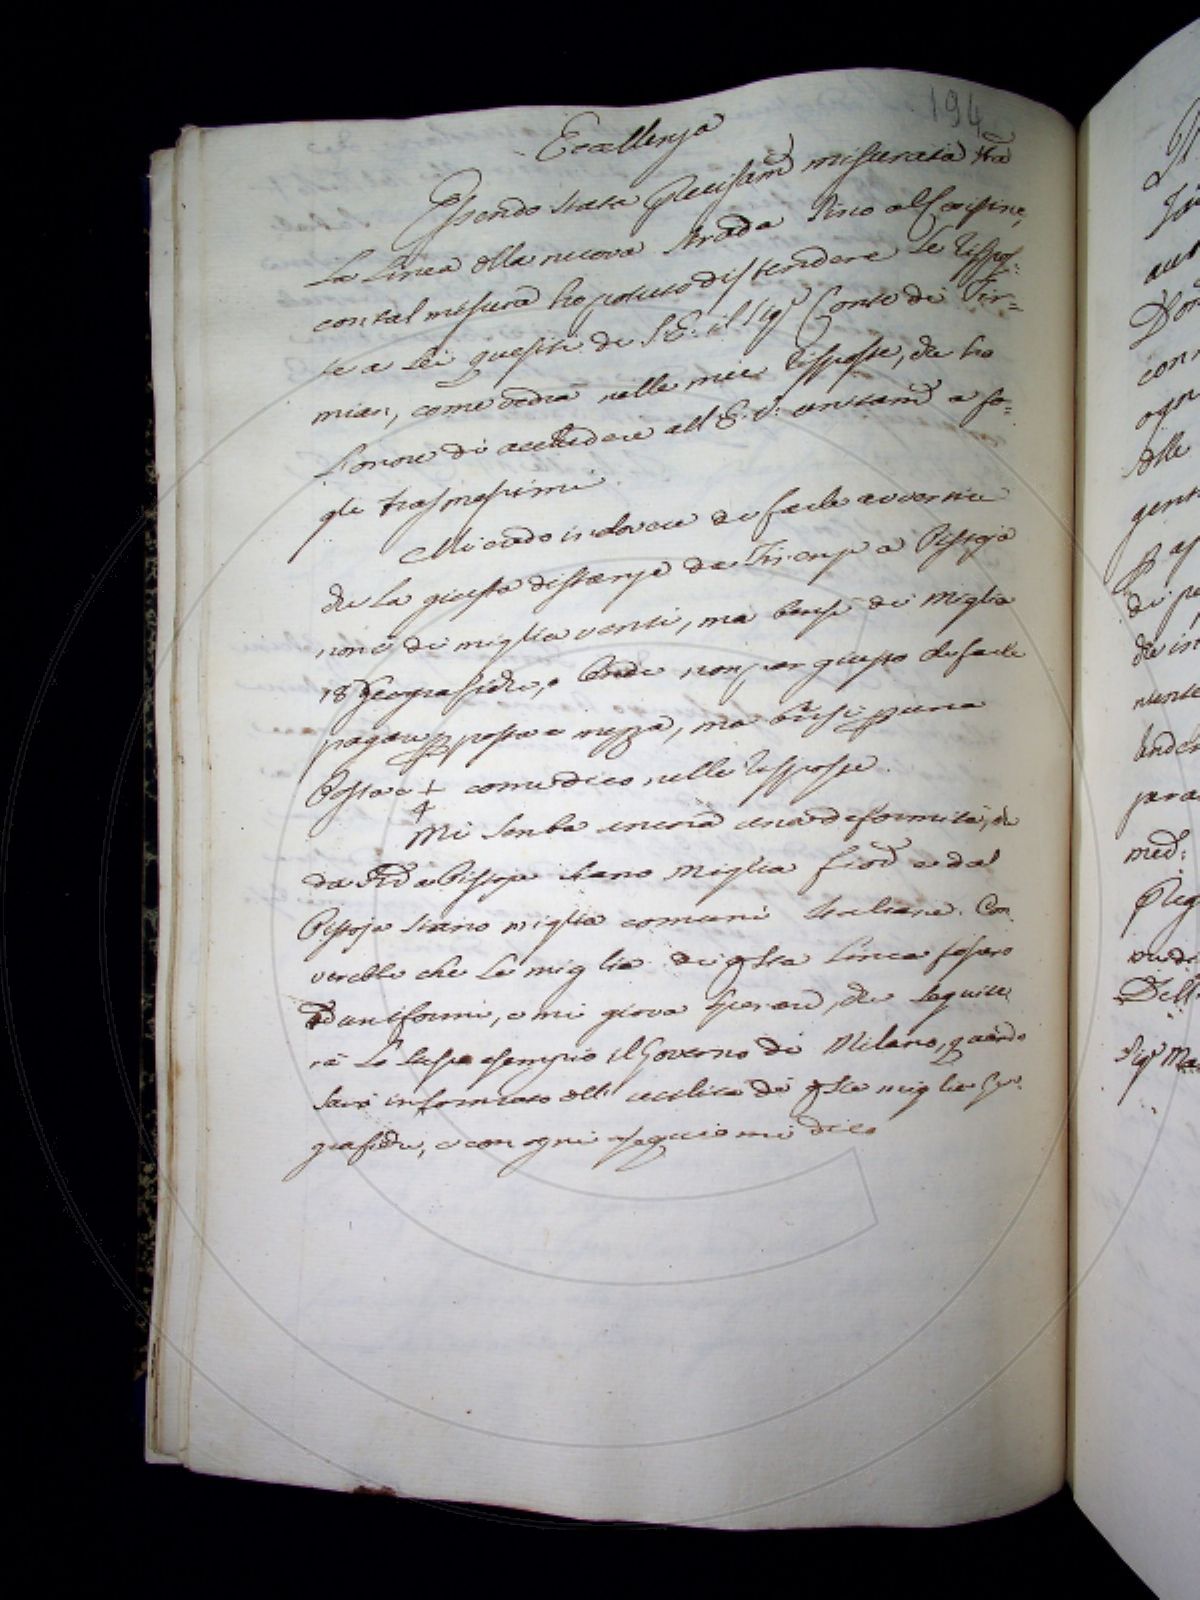 194
Eccellenza
Essendo stata precisam.e misurata tra
La Linea della nuova strada sino al Confine,
con tal misura ho potuto distendere Le Rispos:
te a Lei quesiti di S.E. il Sig.r Conte di Fir=
mian, come vedrà nelle mie Risposte, che ho
L'onore di accludere all'E.V. unitam.e a fo=
gli trasmessimi.
Mi credo in dovere di farle avvertire
che La giusta distanza da Firenze a Pistoja
non è di miglia venti, ma bensì di miglia
18 Geografiche, onde non par giusto di farle
pagare p posta e mezza, ma bensì p una
Posta e 1/4 come dico nelle Risposte.
Mi sembra ancora una deformità, che
da Fir.e a Pistoja siano miglia fior.e e dal
Pistoja siano miglia comuni Italiane. Con
verebbe che Le miglia di q.sta Linea fossero
uniformi, e mi giova sperare, che seguite
rà Lo stesso esempio il Governo di Milano, quando
sarà informato dell' utilità di q.ste miglia Geo
grafiche, e con ogni ossequio mi dico